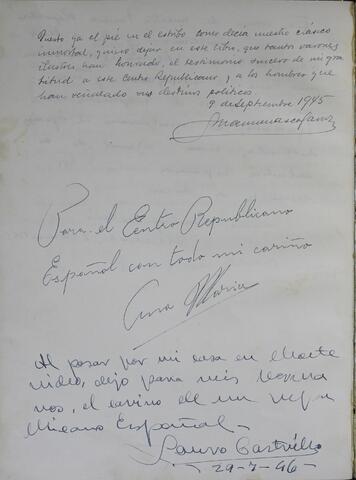 Puesto ya el pié en el estribo como decía nuestro clásico
inmortal, quiero dejar en este libro, que tantos varones
ilustres han honrado, el testimonio sincero de mi gra
titud a este Centro Republicano y a los hombres que
han regulado sus destinos políticos.
9 de Septiembre 1945
Para el Centro Republicano
Español con todo mi cariño
Ana Maria
Al pasar por mi casa en Monte
video, dejo para mis herma
nos, el cariño de un repu
blicano Español-
Lauro Castrillo
29-7-46-